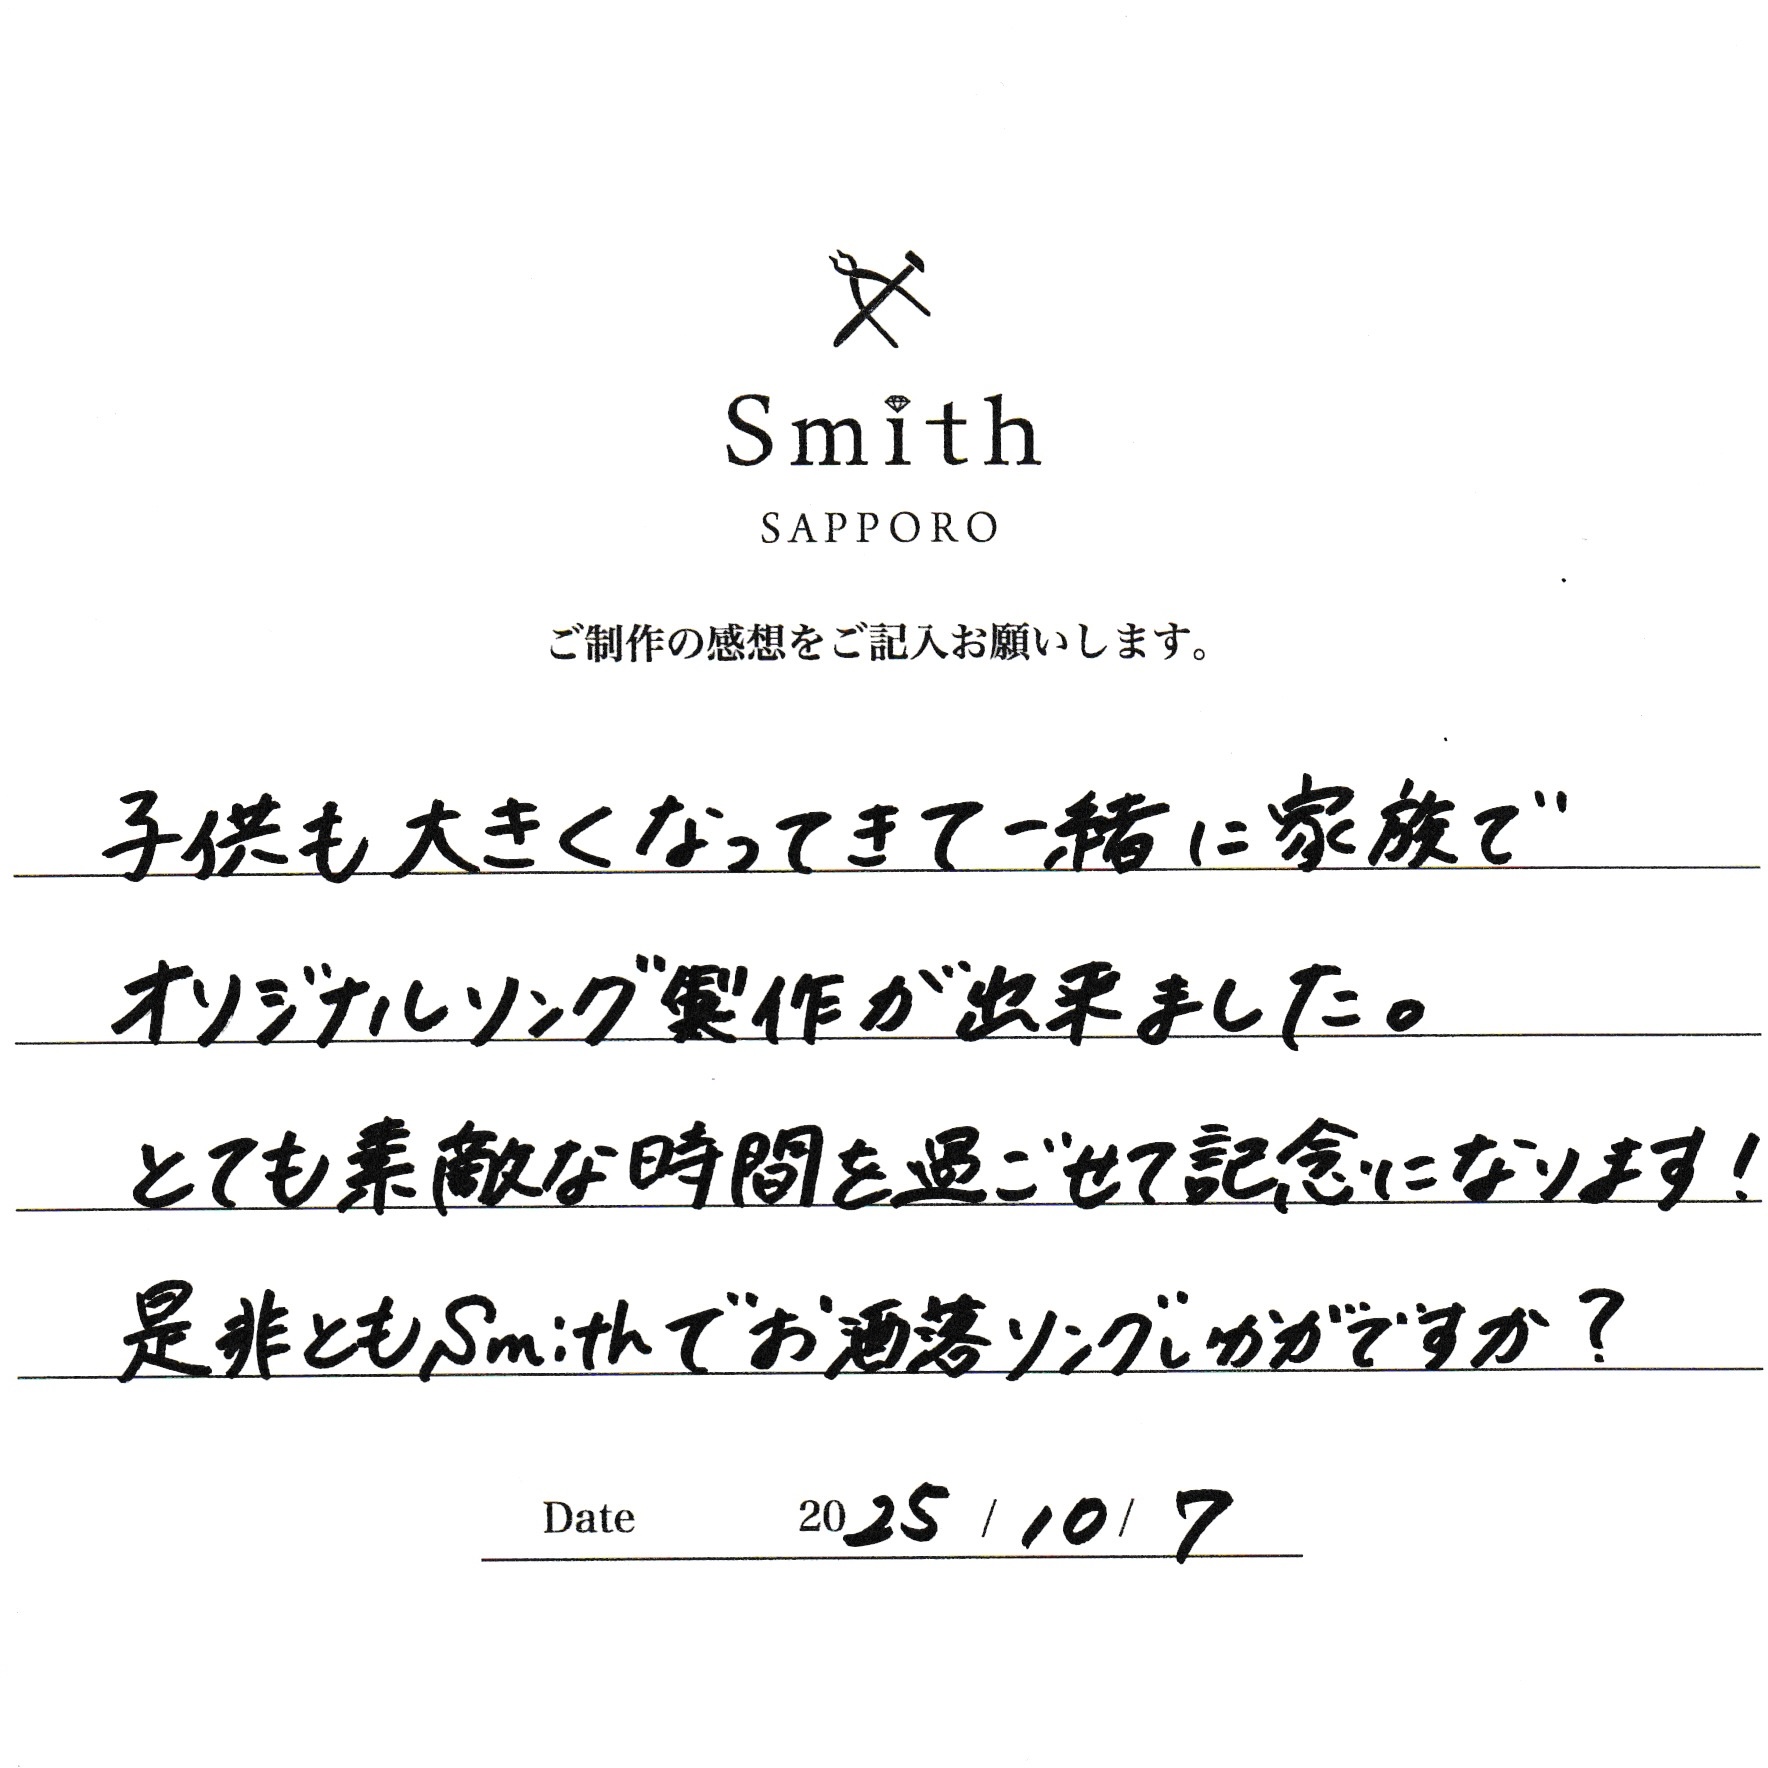 Smith
SAPPORO
ご制作の感想をご記入お願いします。
子供も大きくなってきて一緒に家族で
オリジナルリング製作が出来ました。
とても素敵な時間を過ごせて記念になります!
是非ともSmithでお洒落リングいかがですか?
Date 2025 / 10 / 7